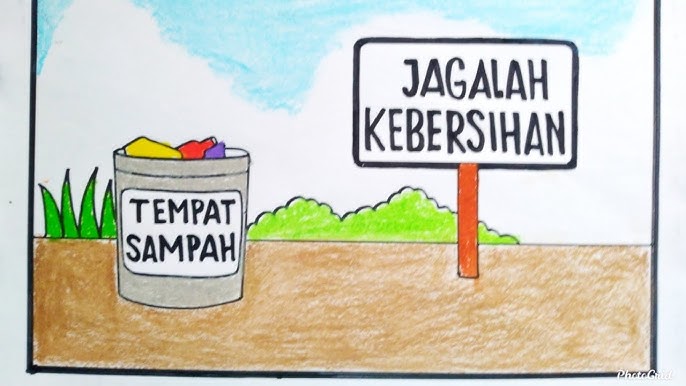 JAGALAH
KEBERSIHAN
TEMPAT
SAMPAH
PhotoGrid